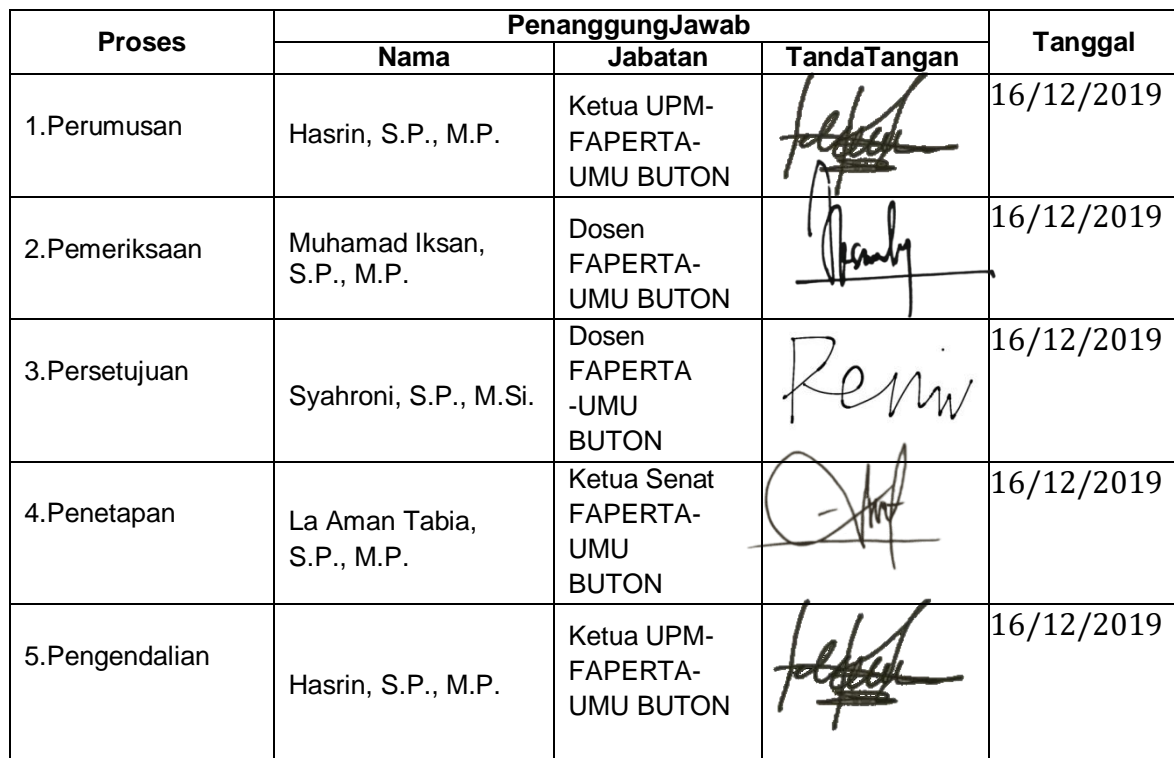 Proses PenanggungJawab Tanggal
Nama Jabatan TandaTangan
1.Perumusan
Hasrin, S.P., M.P.
Ketua UPM-
FAPERTA-
UMU BUTON
16/12/2019
2.Pemeriksaan
Muhamad Iksan,
S.P., M.P.
Dosen
FAPERTA-
UMU BUTON
16/12/2019
3.Persetujuan
Syahroni, S.P., M.Si.
Dosen
FAPERTA
-UMU
BUTON
16/12/2019
4.Penetapan
La Aman Tabia,
S.P., M.P.
Ketua Senat
FAPERTA-
UMU
BUTON
16/12/2019
5.Pengendalian
Hasrin, S.P., M.P.
Ketua UPM-
FAPERTA-
UMU BUTON
16/12/2019